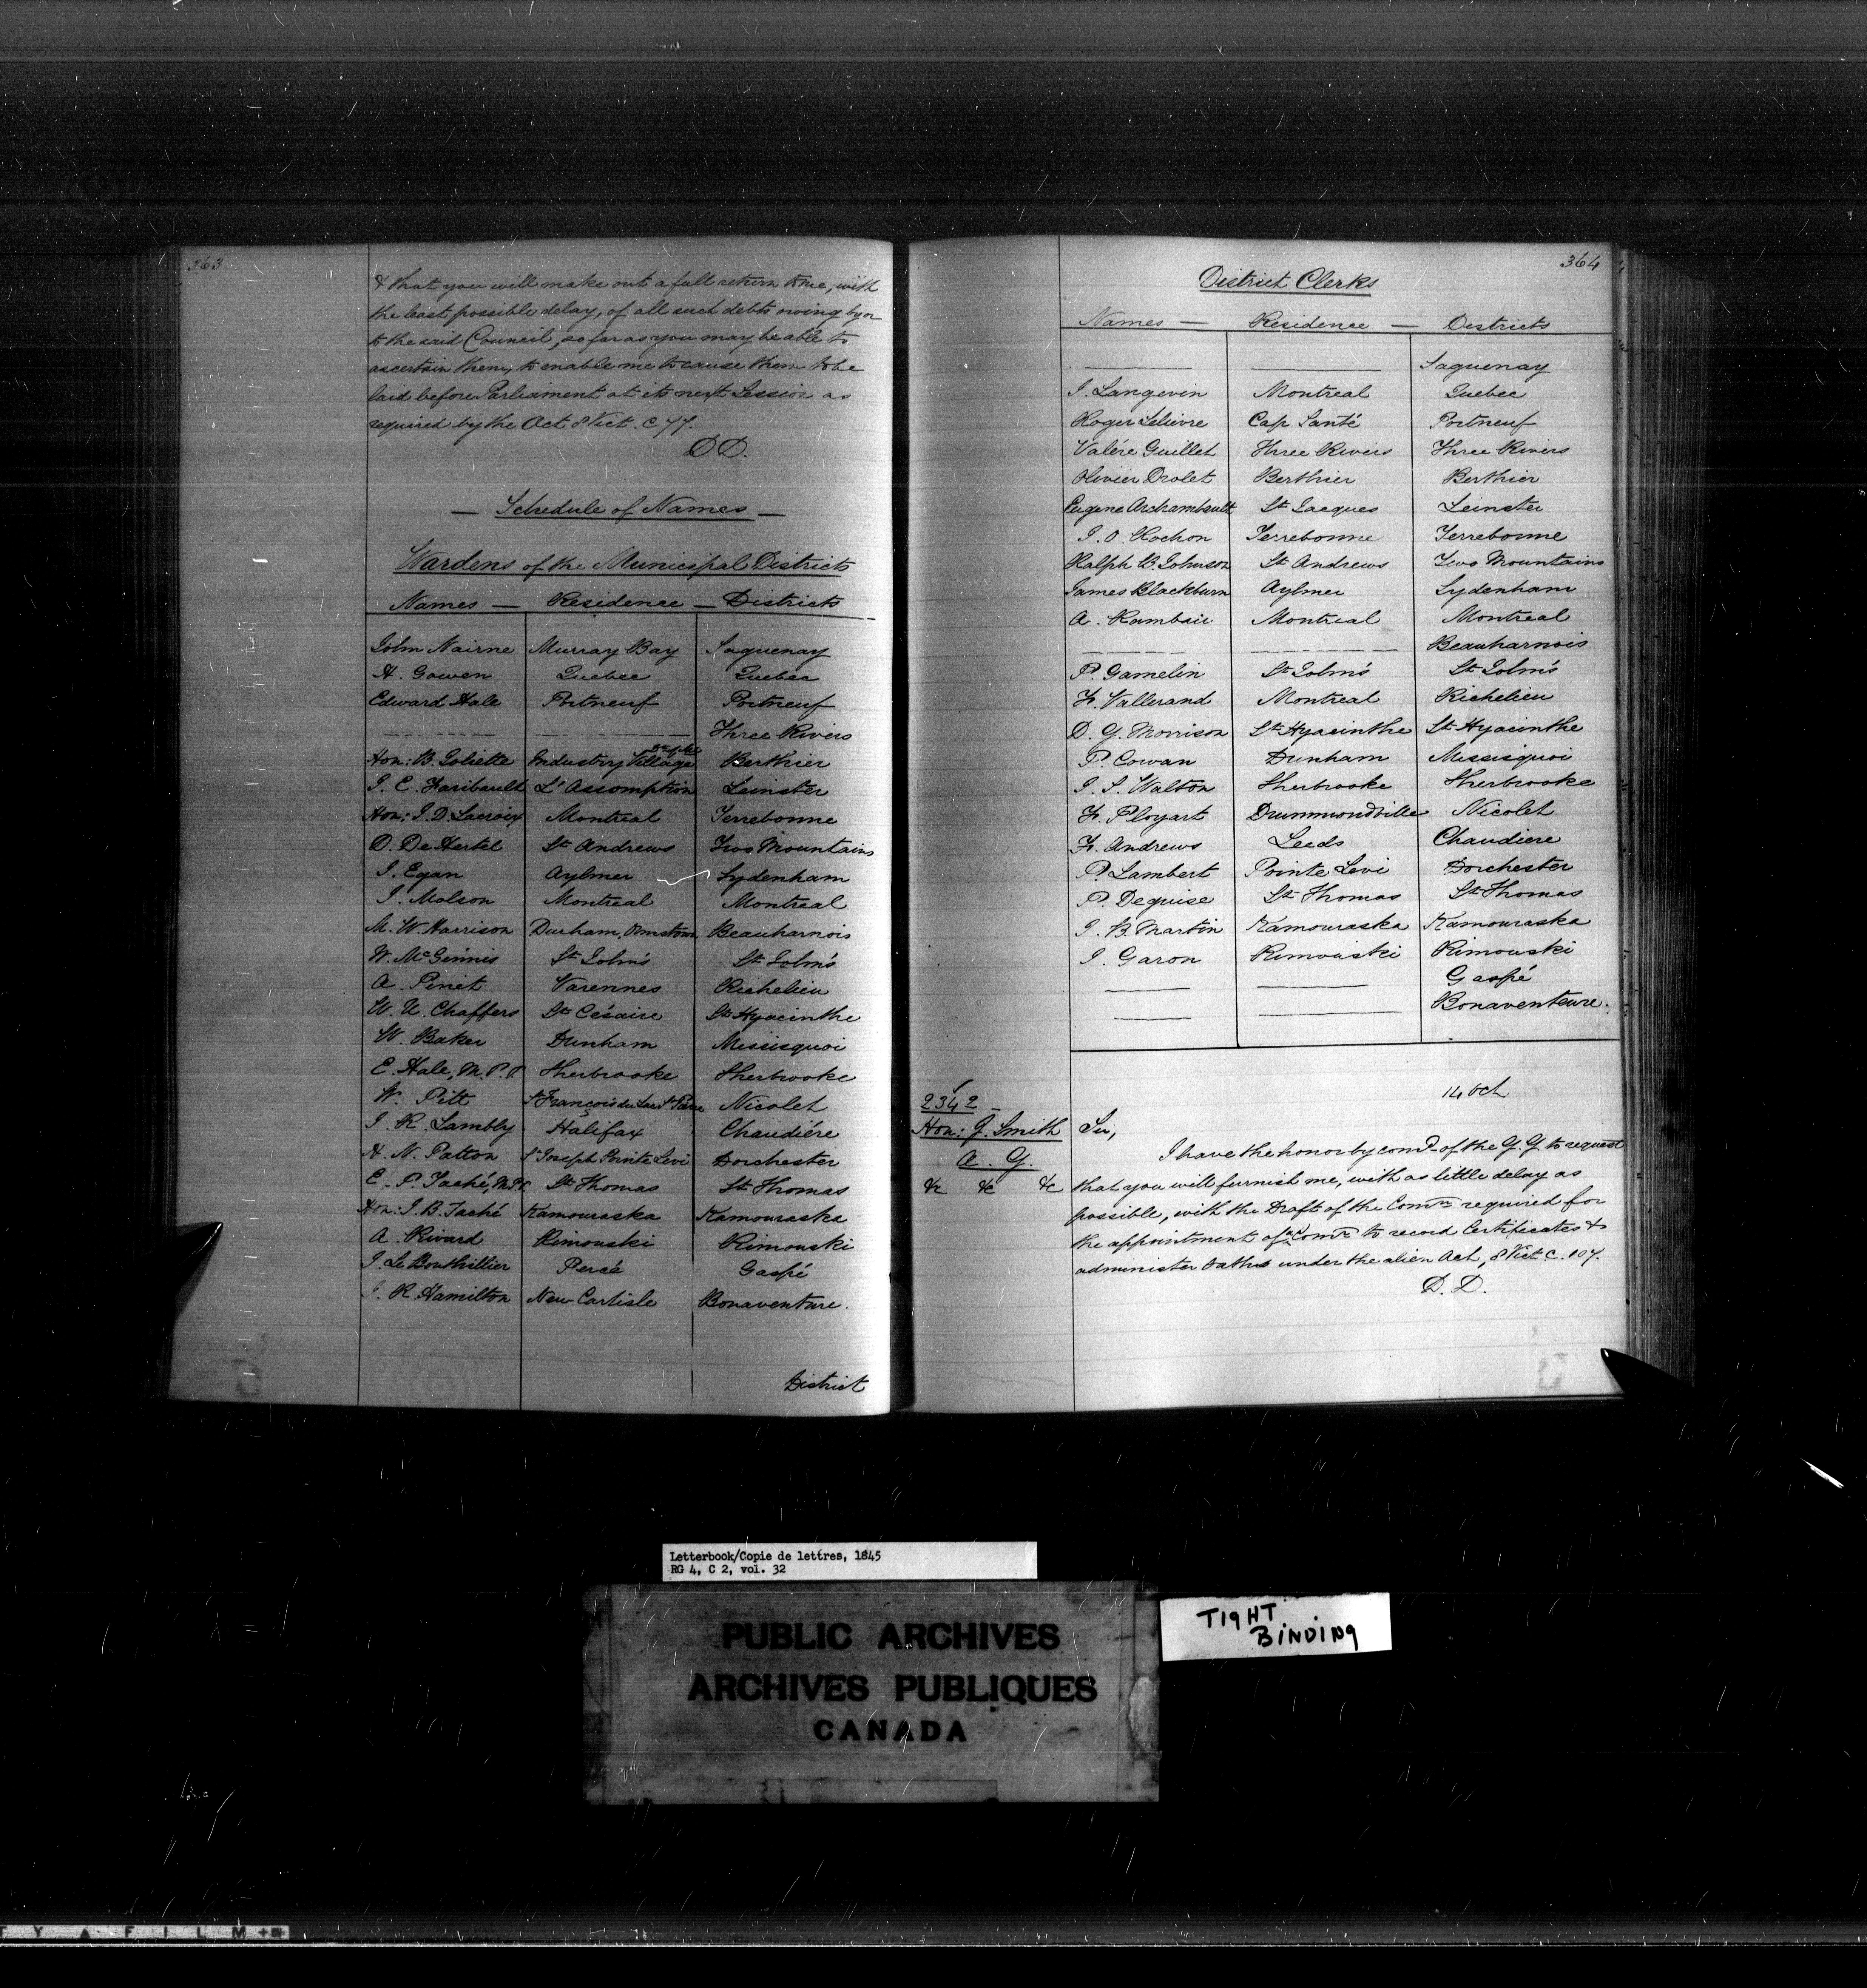 363
& that you will make out a full return to me, with
the least possible delay, of all such debts owing by or
to the said Council, so far as you may be able to
ascertain them, to enable me to cause them to be
laid before Parliament at its next Session as
required by the Act 8 Vict. C 77.
D D.
— Schedule of Names —
Wardens of the Municipal Districts
Names — Residence — Districts
John Nairne Murray Bay Saguenay
H. Gowen Quebec Quebec
Edward Hale Portneuf Portneuf
Three Rivers
Hon: B. Joliette Industry Village Berthier
J. E. Faribault L'Assomption Leinster
Hon: J. D. Lacroix Montreal Terrebonne
D. De Hertel St Andrews Two Mountains
J. Egan Aylmer Sydenham
J. Molson Montreal Montreal
M. W. Harrison Durham, Ormstown Beauharnois
W. McGinnis St John's St John's
A. Pinet Varennes Richelieu
W. U. Chaffers St Césaire St Hyacinthe
W. Baker Dunham Missisquoi
E. Hale, M.P.P. Sherbrooke Sherbrooke
W. Pitt St François du Lac Nicolet
J. R. Lambly Halifax Chaudiére
H. N. Patton St Joseph Pointe Levi Dorchester
E. P. Taché, M.P.P. St Thomas St Thomas
Hon: J. B. Taché Kamouraska Kamouraska
A. Rivard Rimouski Rimouski
J. Le Bouthillier Percé Gaspé
J. R. Hamilton New Carlisle Bonaventure.
District
364
District Clerks
Names — Residence — Districts
Saguenay
J. Langevin Montreal Quebec
Roger Lelievre Cap Santé Portneuf
Valére Guillet Three Rivers Three Rivers
Olivier Drolet Berthier Berthier
Eugene Archambault St Jacques Leinster
J. O. Rochon Terrebonne Terrebonne
Ralph B. Johnson St Andrews Two Mountains
James Blackburn Aylmer Sydenham
A. Kambsic Montreal Montreal
Beauharnois
P. Gamelin St John's St John's
F. Vallerand Montreal Richelieu
D. G. Morrison St Hyacinthe St Hyacinthe
P. Cowan Dunham Missisquoi
J. S. Walton Sherbrooke Sherbrooke
F. Ployart Drummondville Nicolet
F. Andrews Leeds Chaudiere
P. Lambert Pointe Levi Dorchester
P. Deguise St Thomas St Thomas
J. B. Martin Kamouraska Kamouraska
J. Garon Rimouski Rimouski
Gaspé
Bonaventure.
14 Oct
2342
Hon: J. Smith
A. G.
&c &c &c
Sir,
I have the honor by comd of the G. G. to request
that you will furnish me, with as little delay as
possible, with the Draft of the Comn required for
the appointment of a Comr to record Certificates &
administer oaths under the alien Act, 8 Vict C. 107.
D. D.
Letterbook/Copie de lettres, 1845
RG 4, C 2, vol. 32
PUBLIC ARCHIVES
ARCHIVES PUBLIQUES
CANADA
TIGHT
BINDING